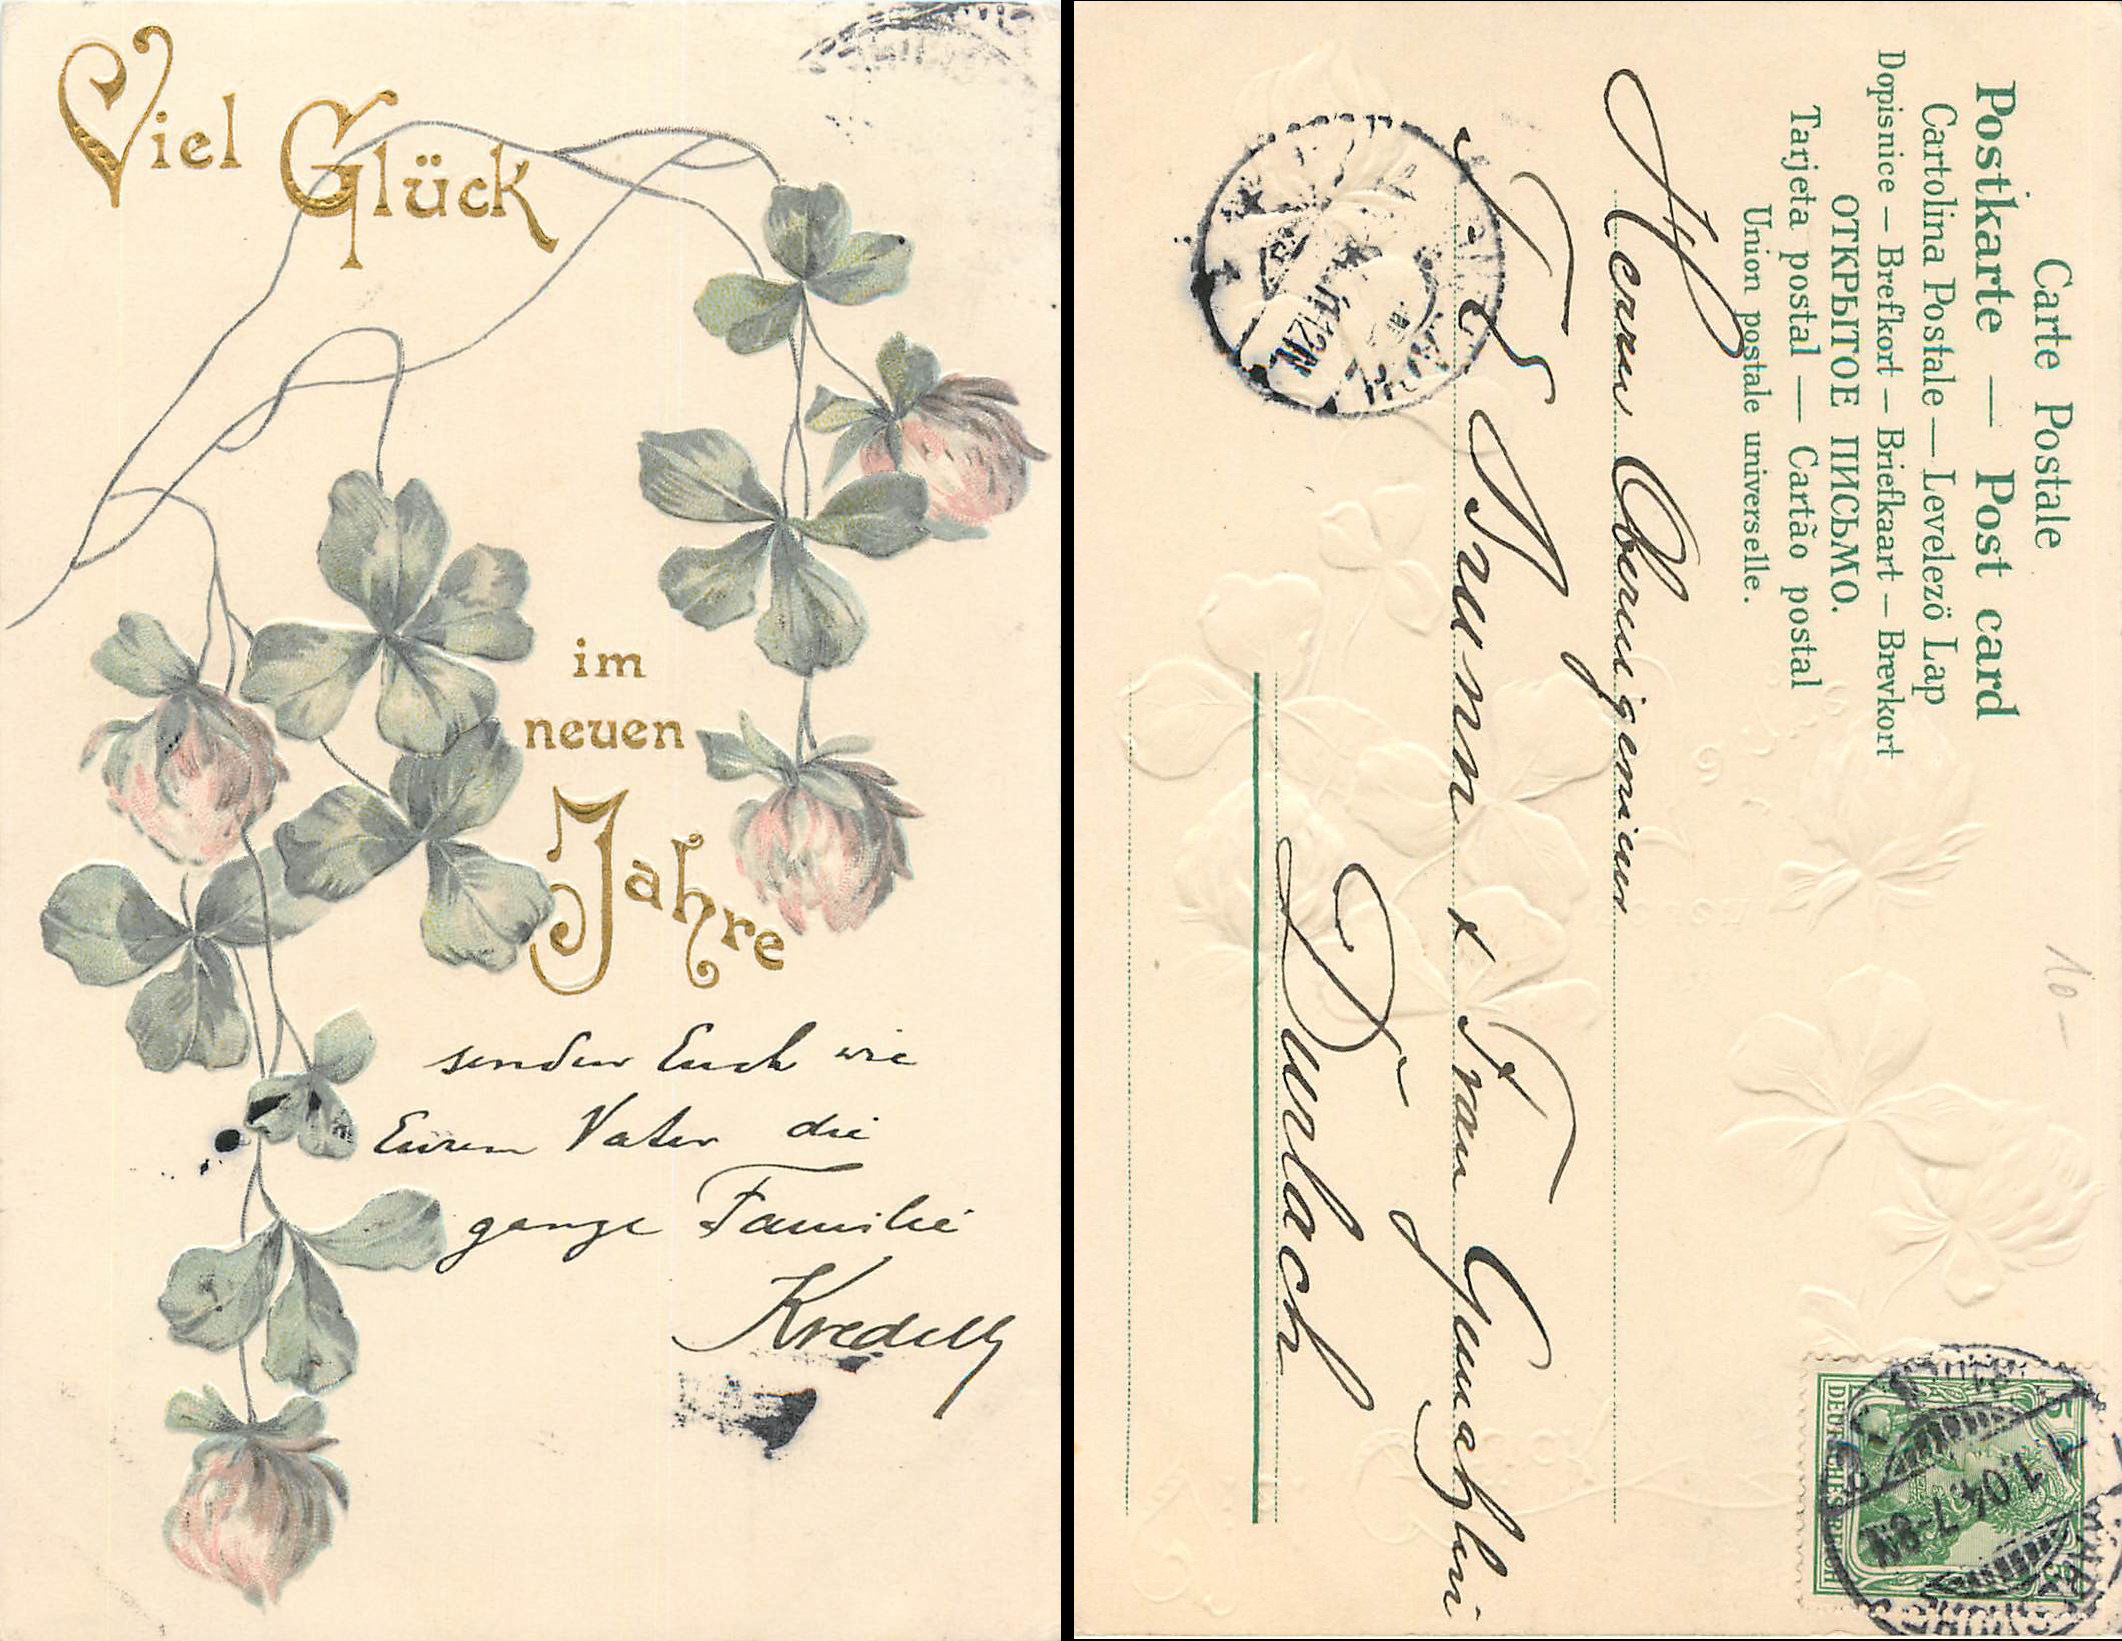 Viel Glück
im
neuen
Jahre
senden Euch wie
Eurem Vater die
ganze Familie
Carte Postale
Postkarte — Post card
Cartolina Postale — Levelezö Lap
Dopisnice — Brefkort — Briefkaart — Brevkort
ОТКРЫТОЕ ПИСЬМО.
Tarjeta postal — Cartão postal
Union postale universelle.
Herrn Oberingenieur
Frau Gemahlin
Durlach
10 –
5
DEUTSCHES REICH
1.1.04.7-8N.
12N.